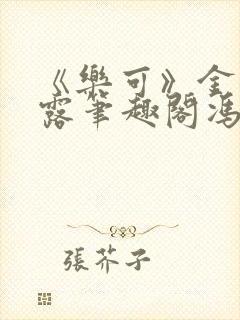 《樂可》金
露筆趣閣馮
張芥子